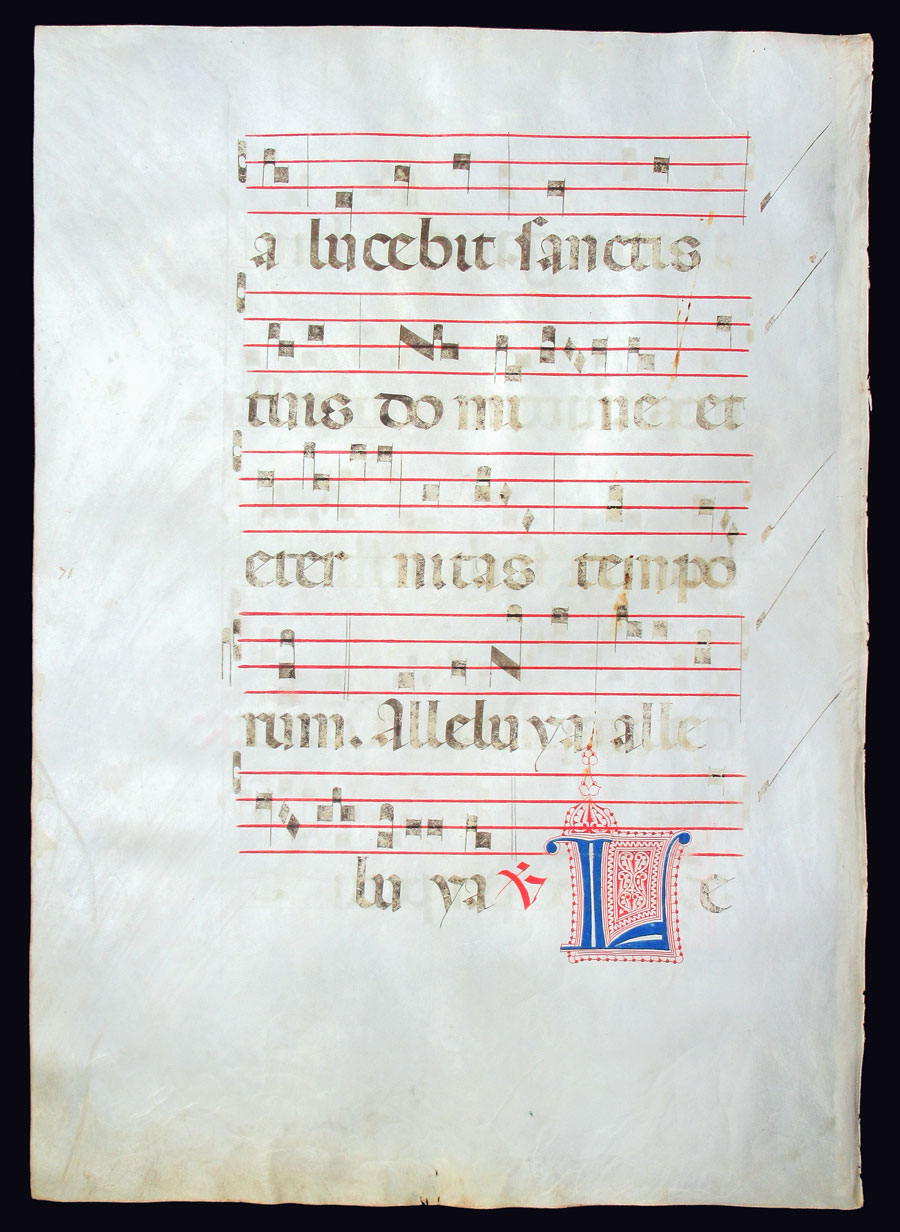 a lucebit sanctis
tuis do mi ne et
eter nitas tempo
rum. Alleluya alle
lu ya ℣ L e